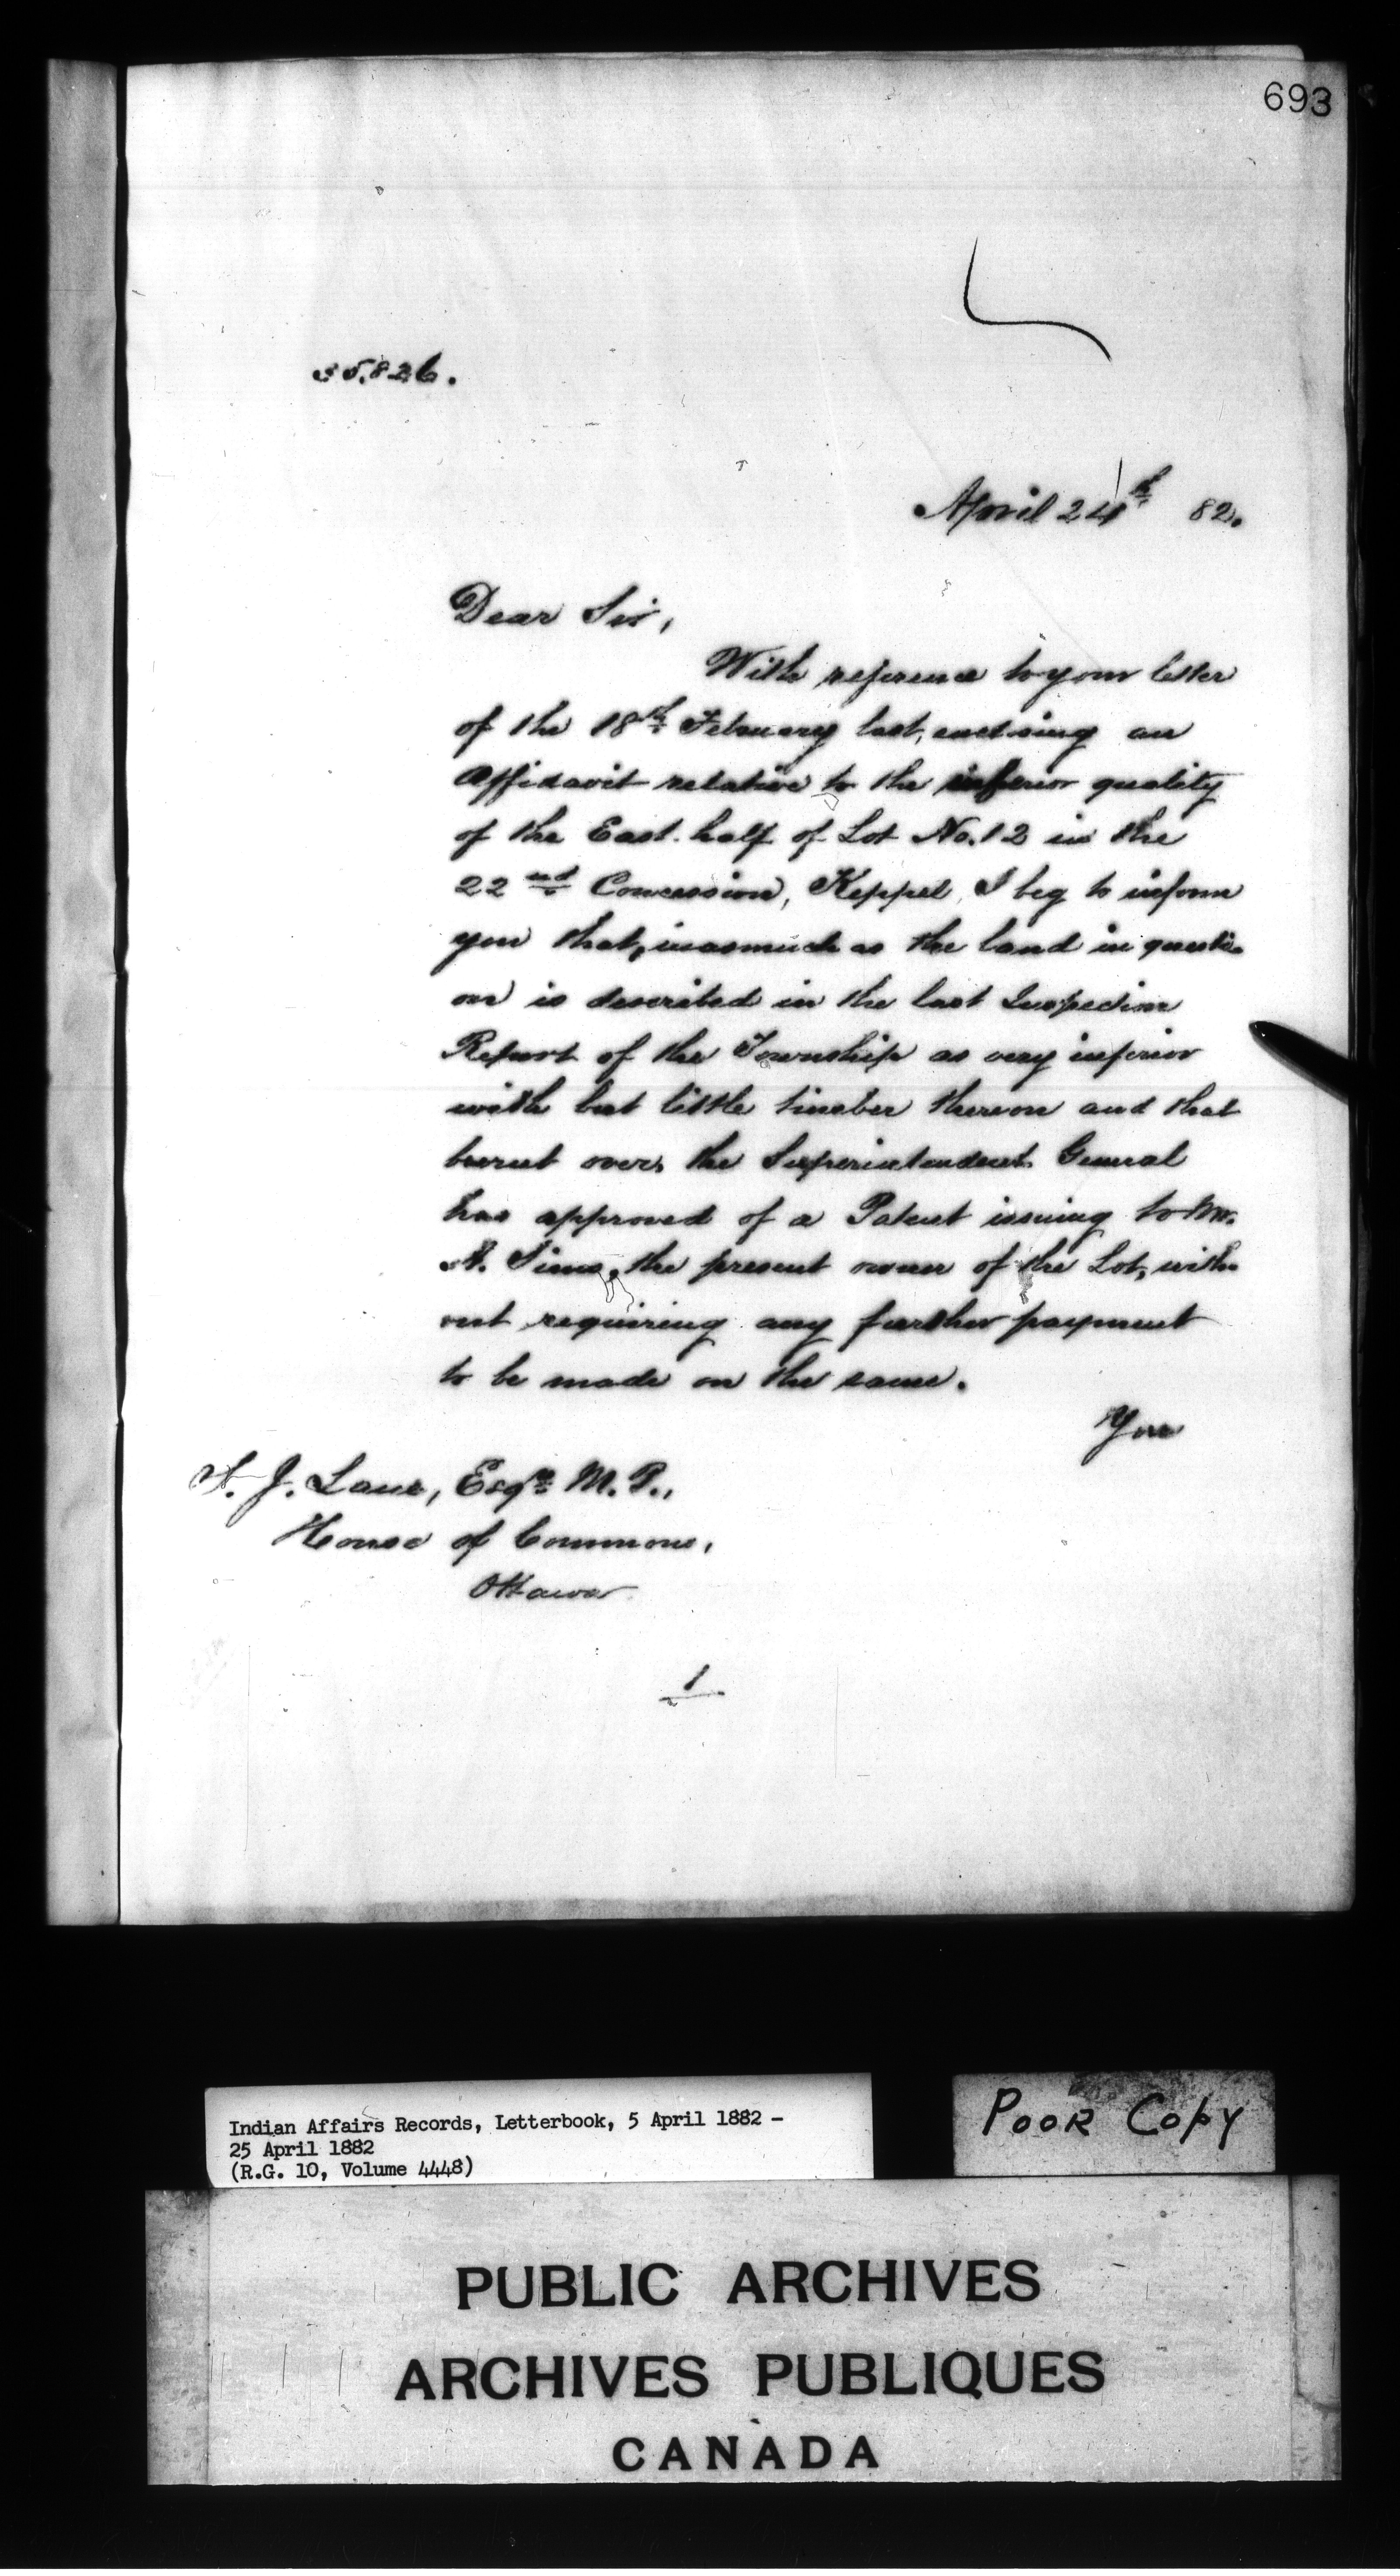 693
35,826.
April 24th 82.
Dear Sir,
With reference to your letter
of the 18th February last, enclosing an
Affidavit relative to the inferior quality
of the East half of Lot No. 12 in the
22nd Concession, Keppel, I beg to inform
you that, inasmuch as the land in questi-
on is described in the last Inspection
Report of the Township as very inferior
with but little timber thereon and that
burnt over, the Superintendent General
has approved of a Patent issuing to Mr.
A. Sims, the present owner of the Lot, with-
out requiring any further payment
to be made on the same.
You
J. Lane, Esqre M.P.,
House of Commons,
Ottawa
1
Indian Affairs Records, Letterbook, 5 April 1882 -
25 April 1882
(R.G. 10, Volume 4448)
POOR COPY
PUBLIC ARCHIVES
ARCHIVES PUBLIQUES
CANADA